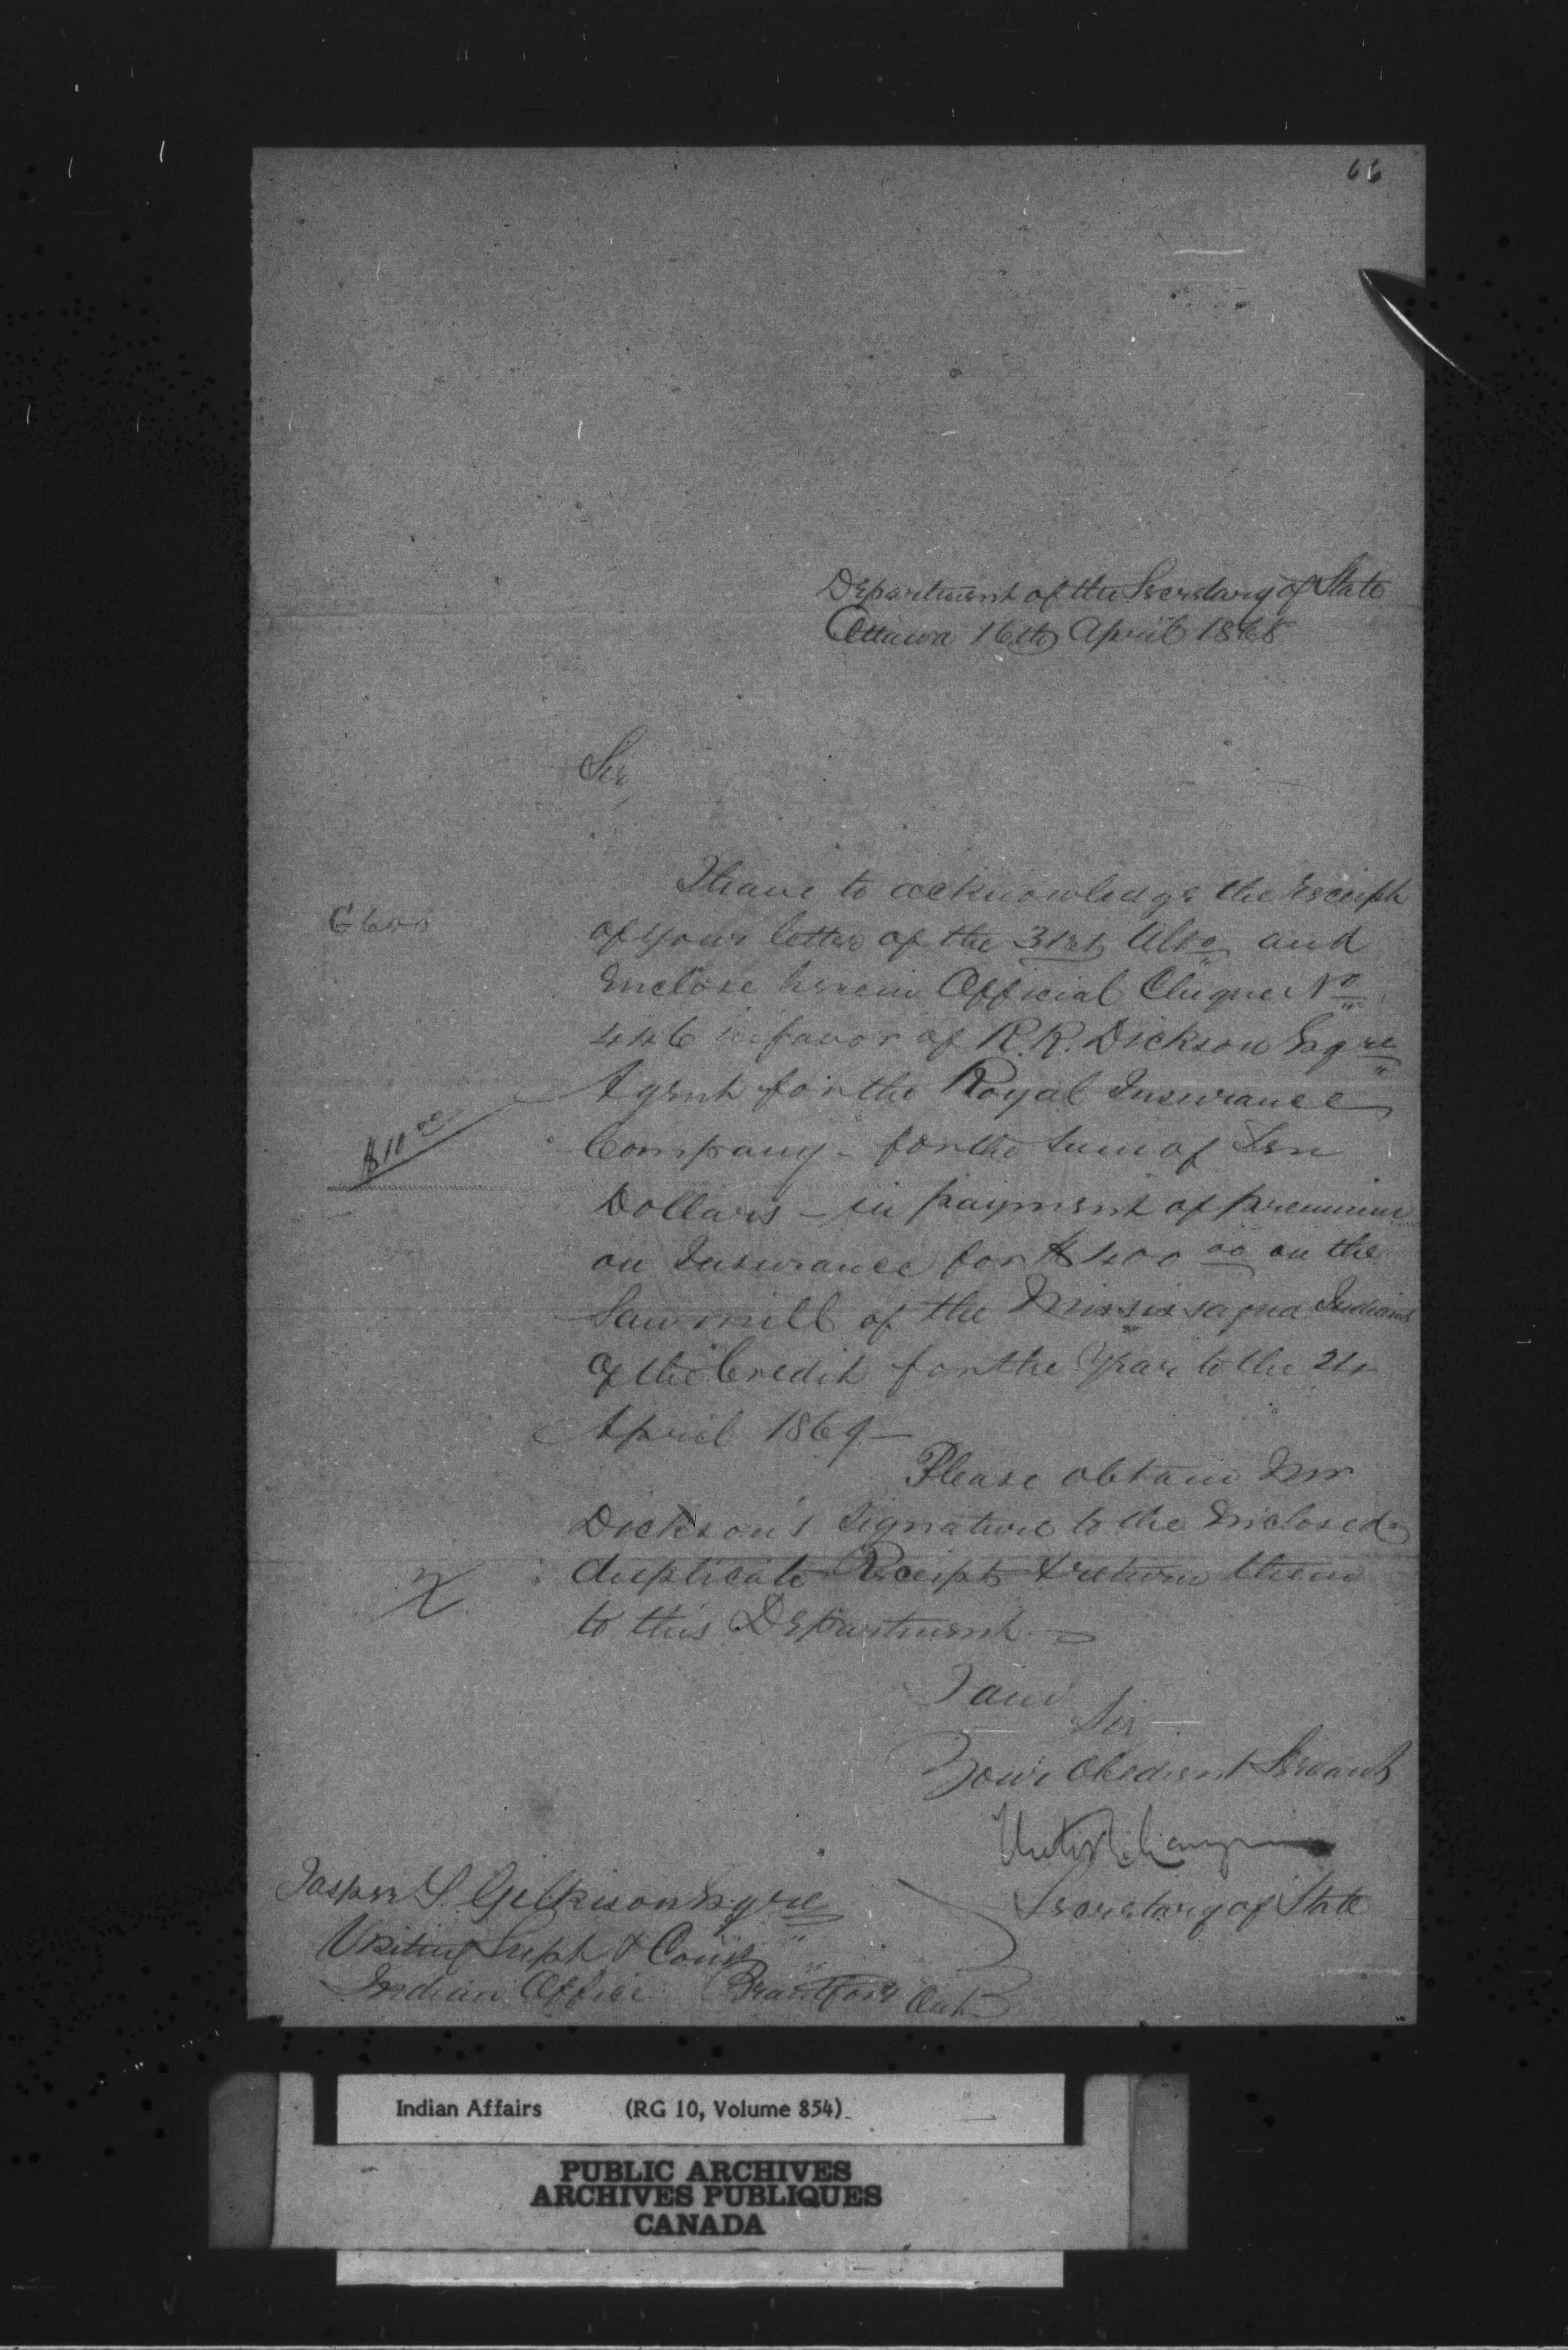 66
Department of the Secretary of State
Ottawa 16th April 1868
Sir,
I have to acknowledge the receipt
of your letter of the 31st Ulto and
Enclose herein Official Cheque No
446 in favor of R. R. Dickson Esqre
Agent for the Royal Insurance
$10 00
Company - for the sum of Ten
Dollars - in payment of premium
on Insurance for $400 00 on the
Sawmill of the Mississagua Indians
of the Credit for the Year to the
April 1869 -
Please obtain Mr
Dickson's signature to the Enclosed
duplicate Receipts & return them
to this Department -
I am
Sir
Your Obedient Servant
Secretary of State
Jasper T. Gilkison Esqre
Visiting Supt & Comr
Indian Office Brantford Ont
Indian Affairs (RG 10, Volume 854)
PUBLIC ARCHIVES
ARCHIVES PUBLIQUES
CANADA